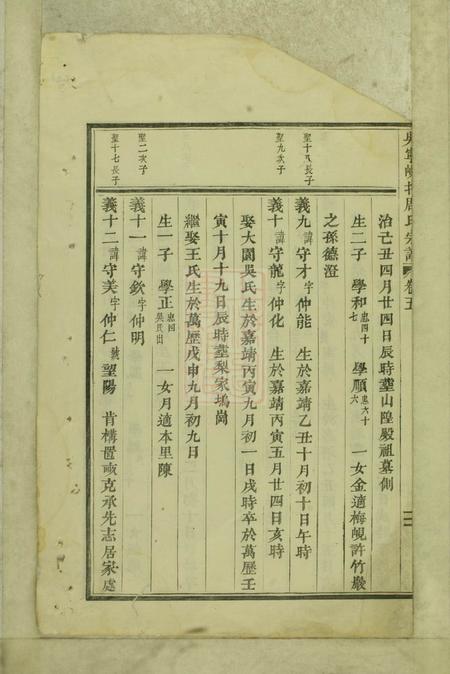 周氏宗譜 卷五
治己丑四月廿四日辰時塟山隍殿祖墓側
生二子 學和忠四十七 學順忠六十六 一女金適梅峴許竹巖
之孫德澄
聖十八長子
義九諱守才字仲能 生於嘉靖乙丑十月初十日午時
聖九次子
義十諱守龍字仲化 生於嘉靖丙寅五月廿四日亥時
娶大園吳氏生於嘉靖丙寅九月初一日戌時卒於萬歷壬
寅十月十九日辰時塟梨家塢崗
繼娶王氏生於萬歷戊申九月初九日
生一子 學正忠四吳氏出 一女月適本里陳
聖二次子
義十一諱守欽字仲明
聖十七長子
義十二諱守美字仲仁號望陽 肯構置畝克承先志居家處